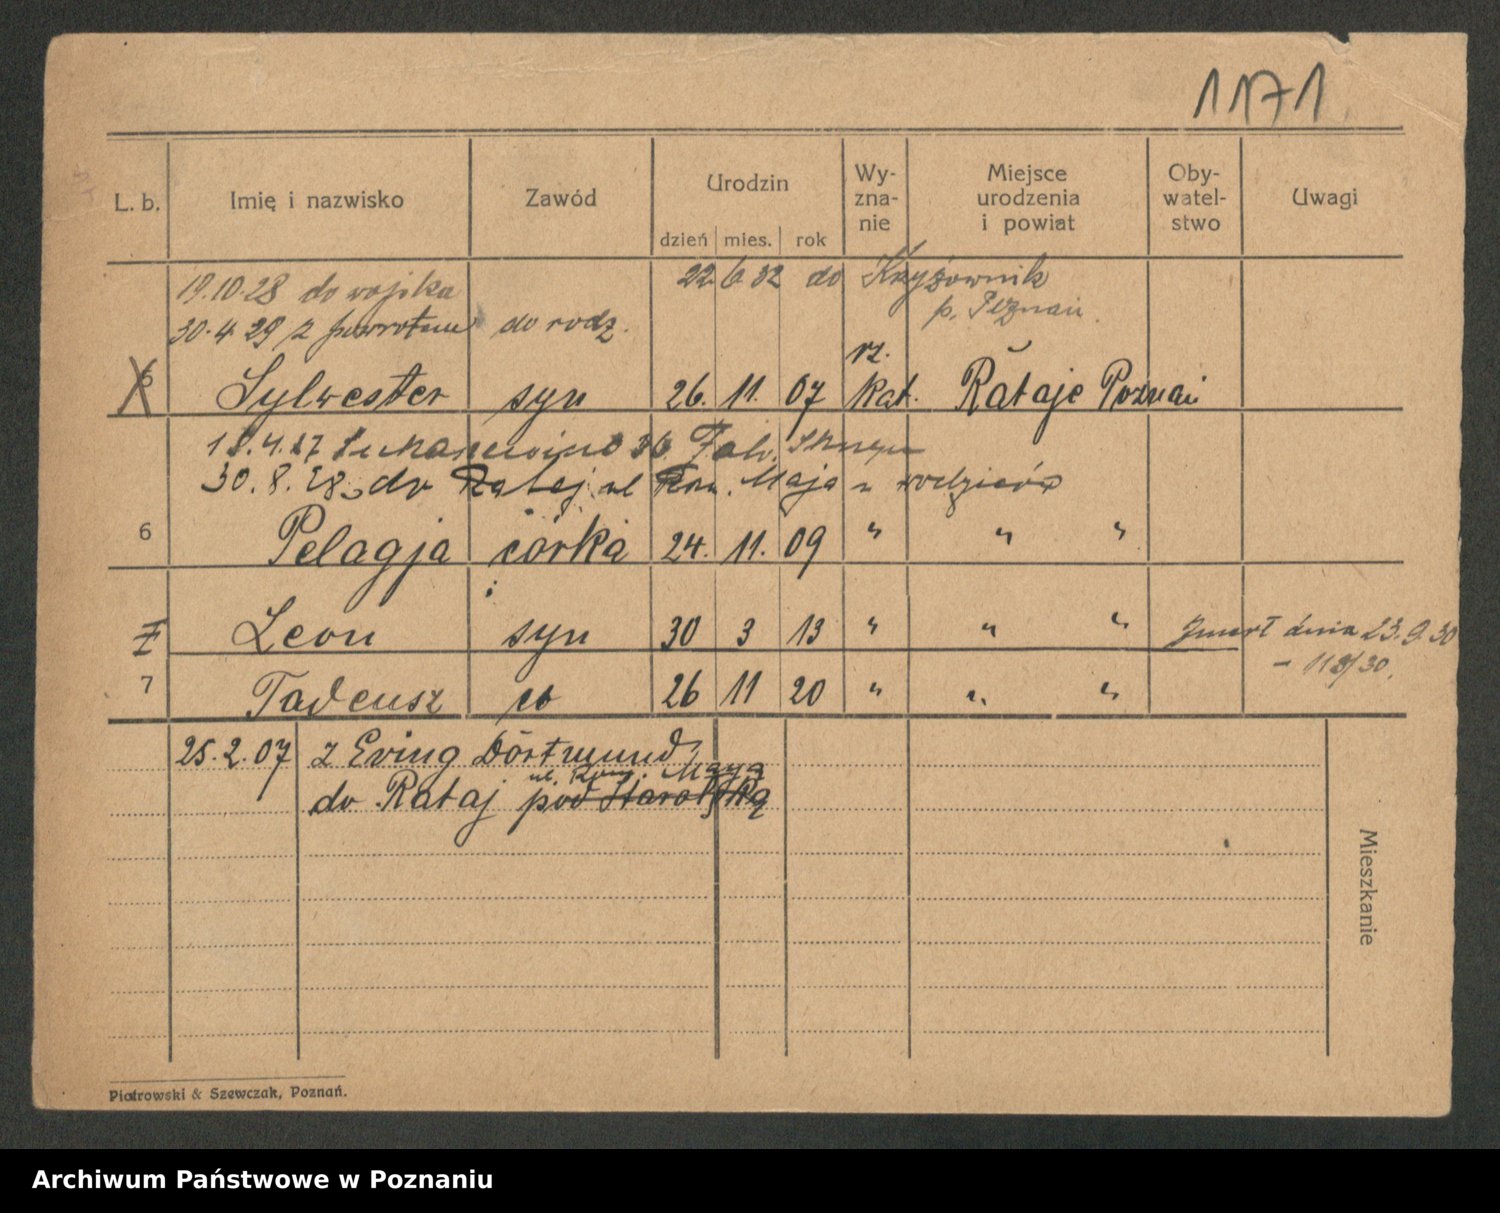 1171
L. b. Imię i nazwisko Zawód Urodzin Wy- zna- nie Miejsce urodzenia i powiat Oby- watel- stwo Uwagi
dzień mies. rok
19.10.28 do wojska 22.6.32 do Krzyżownik
p. Poznań.
30.4.29 z powrotem do rodz.
rz.
5 Sylwester syn 26. 11. 07 kat. Rataje Poznań
18.4.27 36
30.8.28 do Rataj ul Maja rodziców
6 Pelagja córka 24. 11. 09 " " "
7 Leon syn 30 3 13 " " " Zmarł dnia 23.9.30
7 Tadeusz 26 11 20 " " " - 118/30.
25.2.07 z Eving Dortmund
ul. Maya
do Rataj pod Starołęką
Mieszkanie
Piotrowski & Szewczak, Poznań.
Archiwum Państwowe w Poznaniu